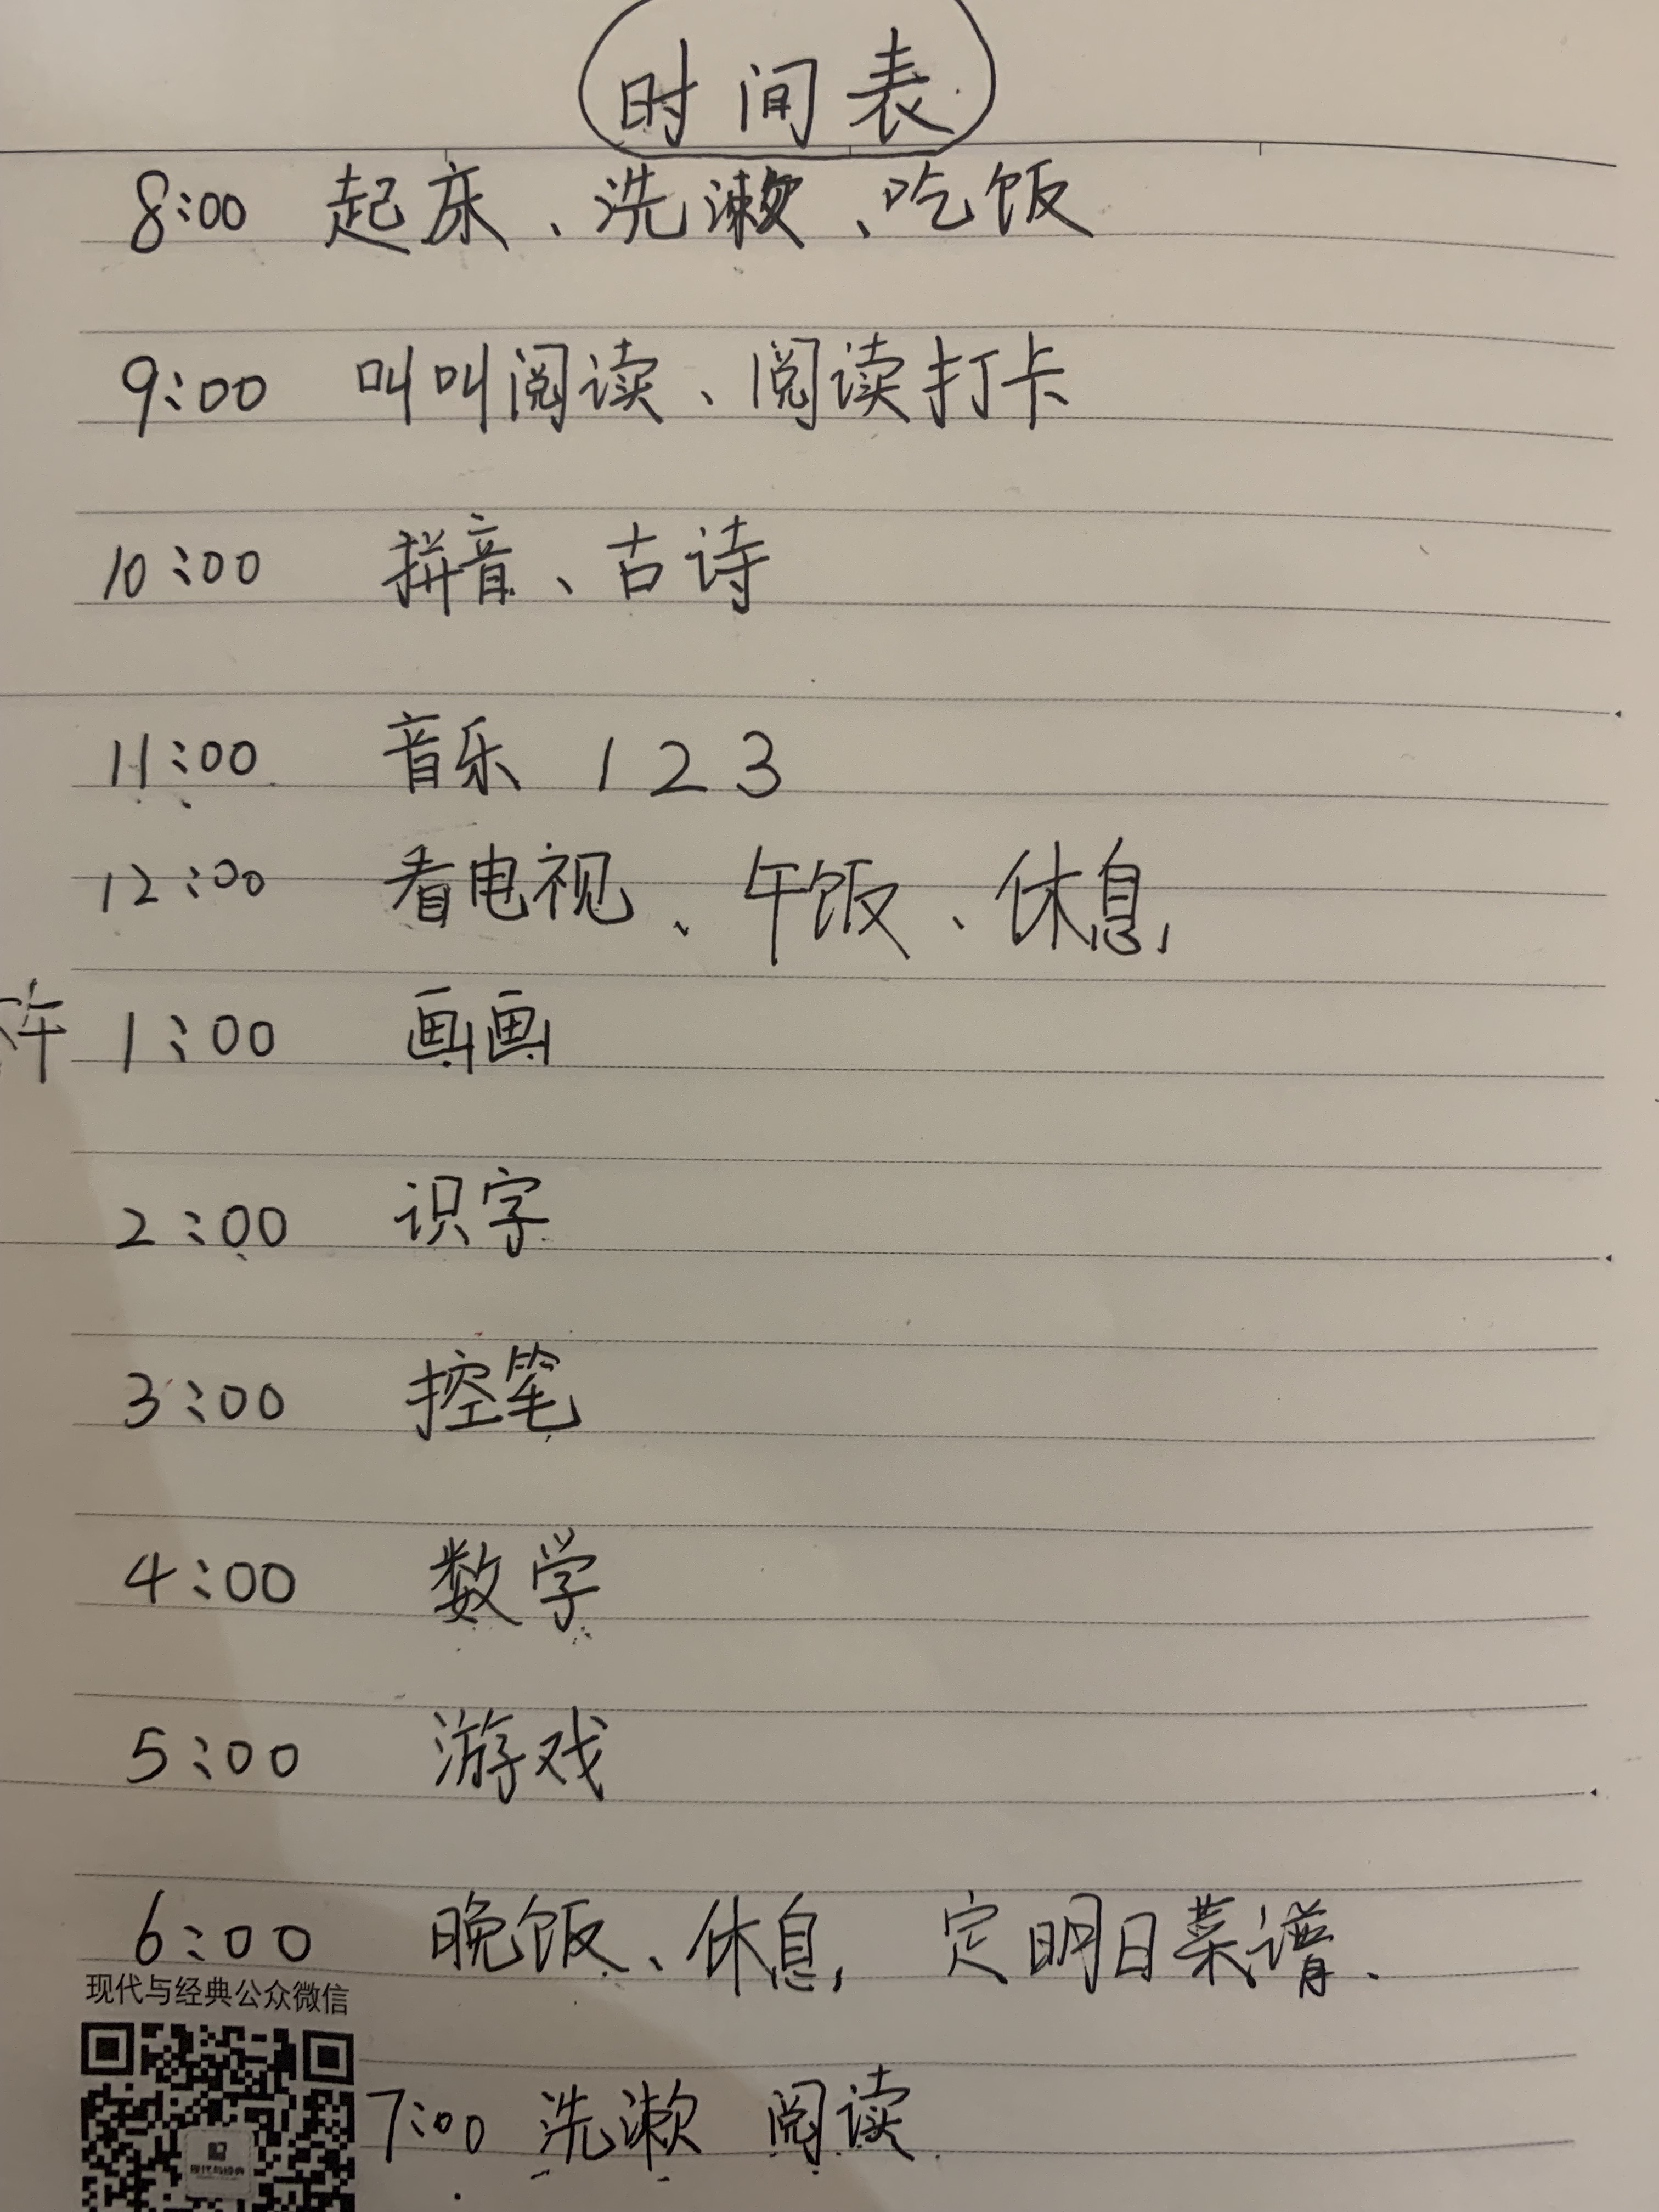 时间表
8:00 起床、洗漱、吃饭
9:00 叫叫阅读、阅读打卡
10:00 拼音、古诗
11:00 音乐 1 2 3
12:00 看电视、午饭、休息
下午 1:00 画画
2:00 识字
3:00 控笔
4:00 数学
5:00 游戏
6:00 晚饭、休息, 定明日菜谱.
现代与经典公众微信
7:00 洗漱 阅读.
现代与经典